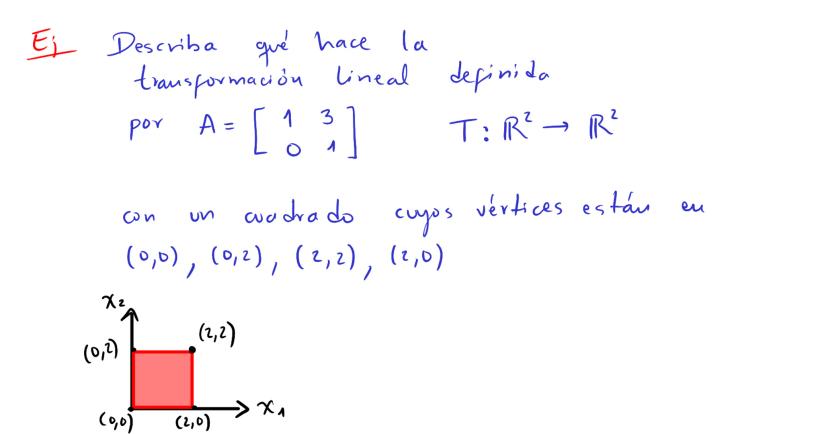 Ej Describa qué hace la
transformación lineal definida
por A = [ 1 3 T : ℝ² → ℝ²
0 1 ]
con un cuadrado cuyos vértices están en
(0,0), (0,2), (2,2), (2,0)
x₂
(2,2)
(0,2)
x₁
(0,0) (2,0)